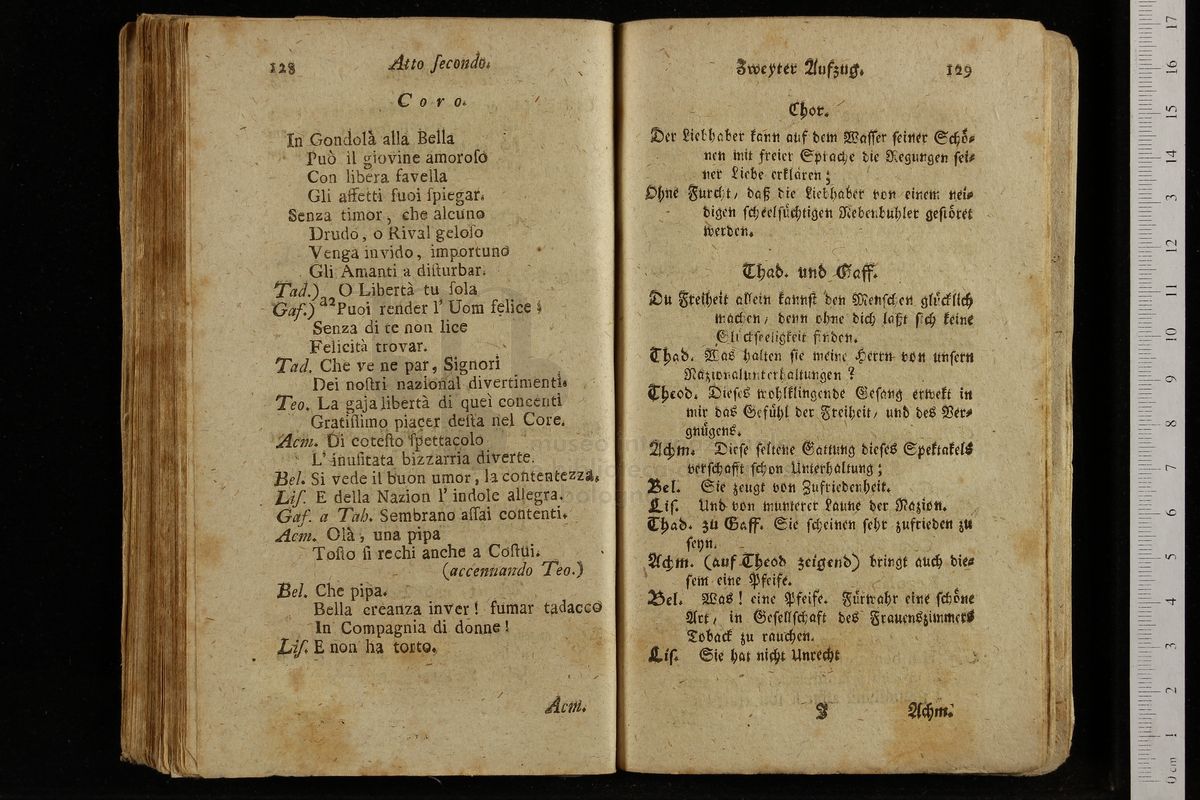 128 Atto ſecondo.
Coro.
In Gondolà alla Bella
Può il giovine amoroſo
Con libera favella
Gli affetti ſuoi ſpiegar.
Senza timor, che alcuno
Drudo, o Rival geloſo
Venga invido, importuno
Gli Amanti a diſturbar.
Tad.) O Libertà tu ſola
Gaf.) a2 Puoi render l' Uom felice;
Senza di te non lice
Felicità trovar.
Tad. Che ve ne par, Signori
Dei noſtri nazional divertimenti.
Teo. La gaja libertà di quei concenti
Gratiſſimo piacer deſta nel Core.
Acm. Di coteſto ſpettacolo
L' inuſitata bizzarria diverte.
Bel. Si vede il buon umor, la contentezza,
Liſ. E della Nazion l' indole allegra.
Gaf. a Tab. Sembrano aſſai contenti.
Acm. Olà, una pipa
Toſto ſi rechi anche a Coſtui.
(accennando Teo.)
Bel. Che pipa.
Bella creanza inver! fumar tadacco
In Compagnia di donne!
Liſ. E non ha torto.
Acm.
Zweyter Aufzug. 129
Chor.
Der Liebhaber kann auf dem Waſſer ſeiner Schö-
nen mit freier Sprache die Regungen ſei-
ner Liebe erklären;
Ohne Furcht, daß die Liebhaber von einem nei-
digen ſcheelſüchtigen Nebenbuhler geſtöret
werden.
Thad. und Gaff.
Du Freiheit allein kannſt den Menſchen glücklich
machen, denn ohne dich laßt ſich keine
Glückſeeligkeit finden.
Thad. Was halten ſie meine Herrn von unſern
Nazionalunterhaltungen?
Theod. Dieſes wohlklingende Geſang erwekt in
mir das Gefühl der Freiheit, und des Ver-
gnügens.
Achm. Dieſe ſeltene Gattung dieſes Spektakels
verſchafft ſchon Unterhaltung;
Bel. Sie zeugt von Zufriedenheit.
Liſ. Und von munterer Laune der Nazion.
Thad. zu Gaff. Sie ſcheinen ſehr zufrieden zu
ſeyn.
Achm. (auf Theod zeigend) bringt auch die-
ſem eine Pfeife.
Bel. Was! eine Pfeife. Fürwahr eine ſchöne
Art, in Geſellſchaft des Frauenszimmers
Toback zu rauchen.
Liſ. Sie hat nicht Unrecht
J Achm.